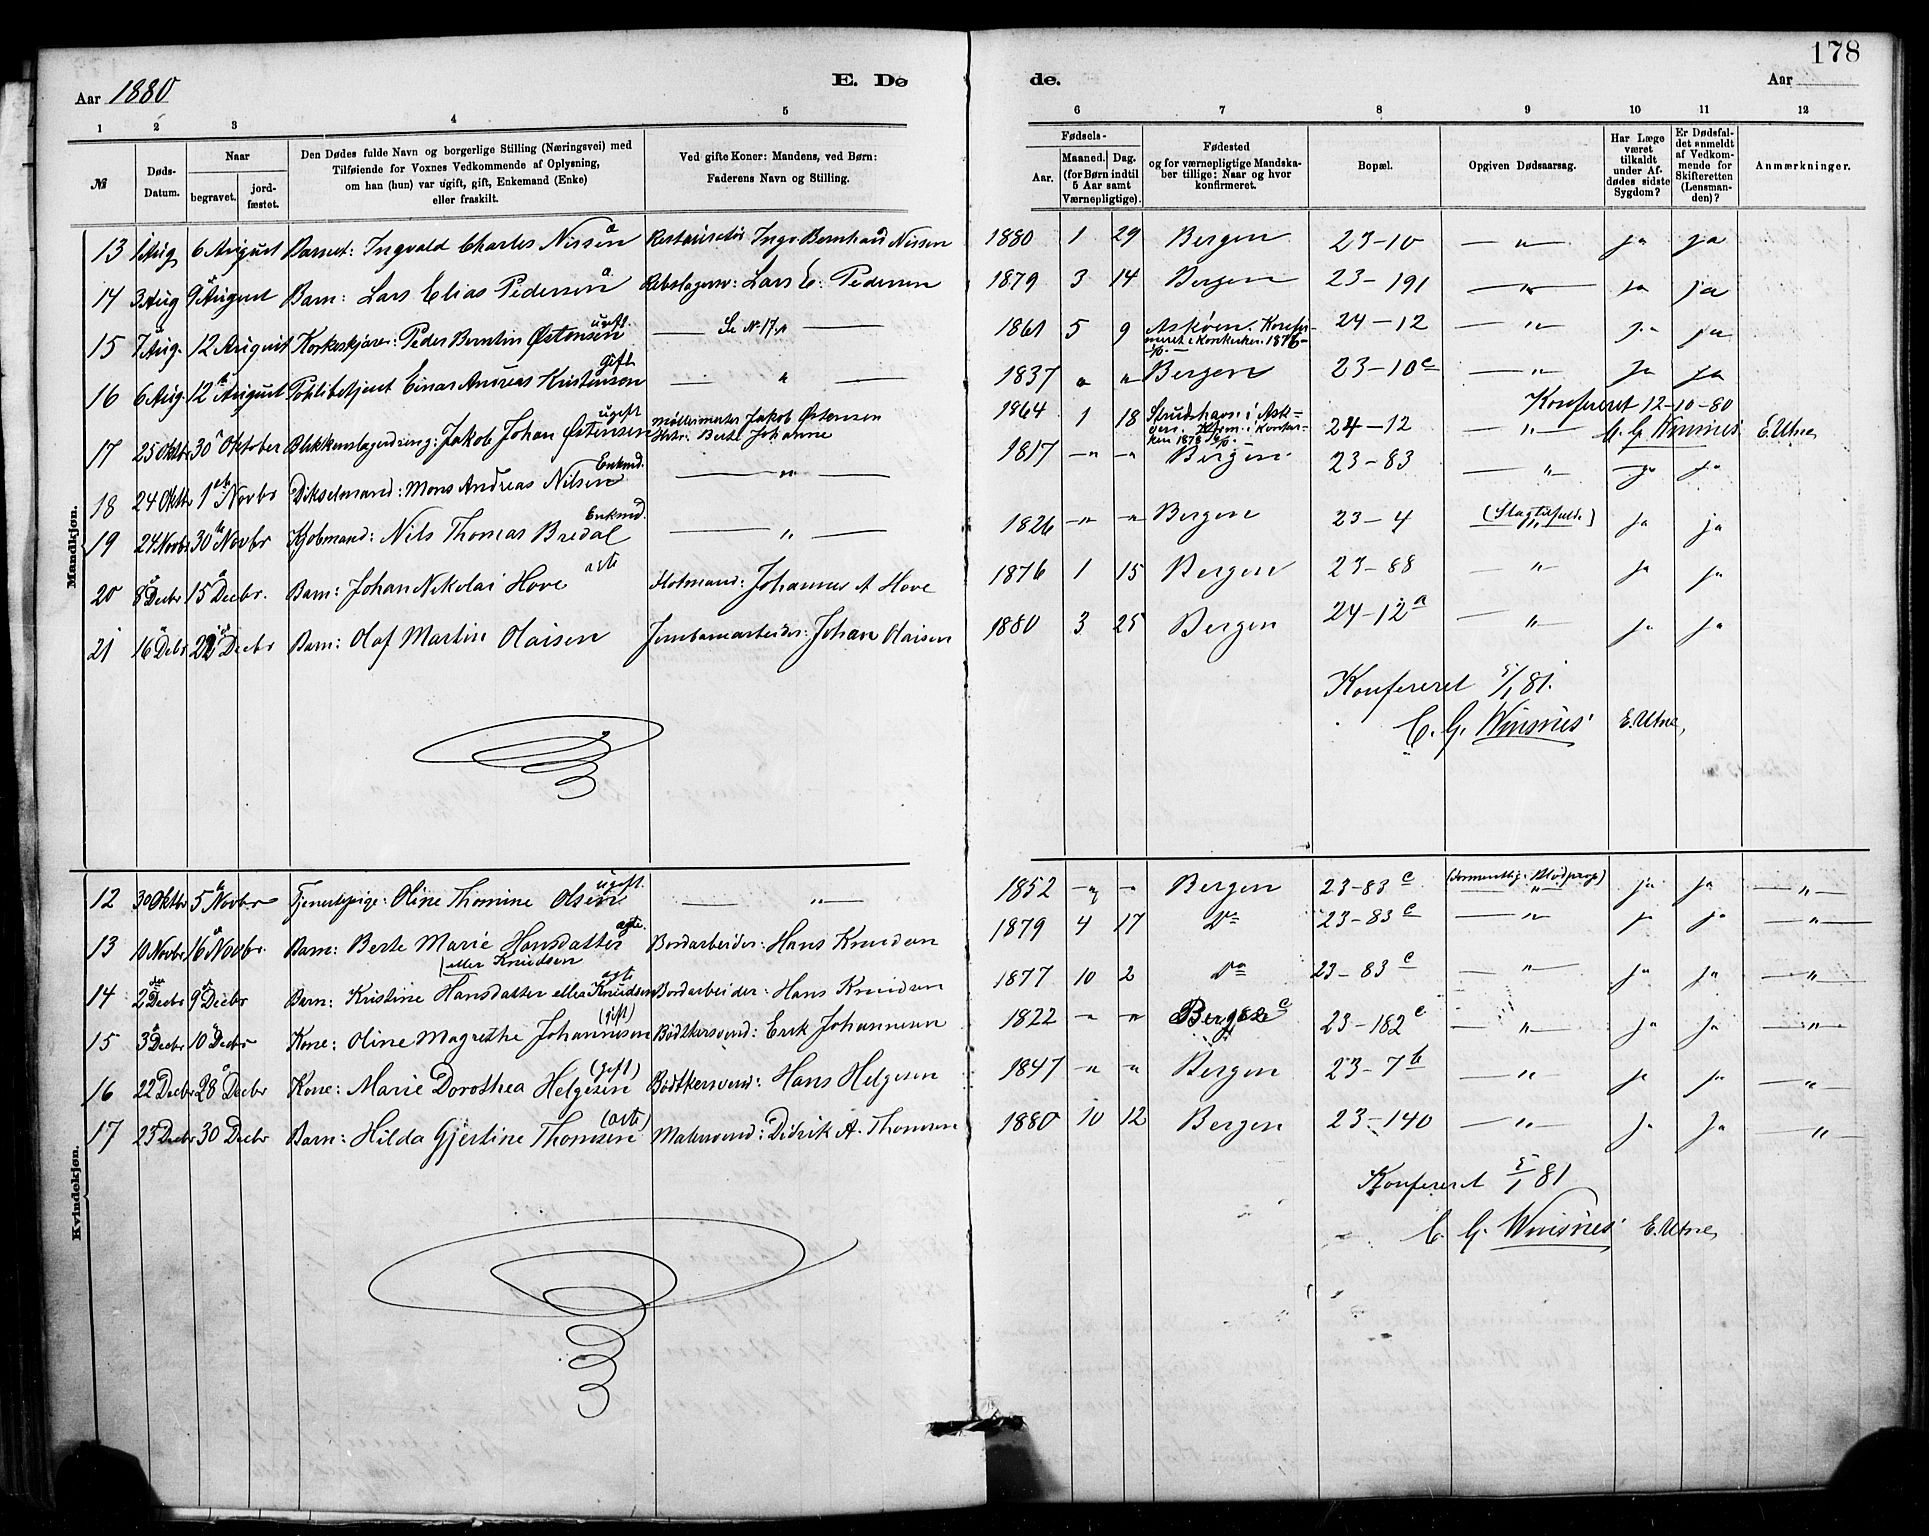 178
Aar 1880
E. Dø
de.
Aar
1 2 3 4 5
6 7 8 9 10 11 12
№
Døds-
Datum.
Naar
begravet.
jord-
fæstet.
Den Dødes fulde Navn og borgerlige Stilling (Næringsvei) med
Tilføiende for Voxnes Vedkommende af Oplysning,
om han (hun) var ugift, gift, Enkemand (Enke)
eller fraskilt.
Ved gifte Koner: Mandens, ved Børn:
Faderens Navn og Stilling.
Fødsels-
Aar.
Maaned. Dag.
(for Børn indtil
5 Aar samt
Værnepligtige).
Fødested
og for værnepligtige Mandska-
ber tillige: Naar og hvor
konfirmeret.
Bopæl.
Opgiven Dødsaarsag.
Har Læge
været
tilkaldt
under Af-
dødes sidste
Sygdom?
Er Dødsfal-
det anmeldt
af Vedkom-
mende for
Skifteretten
(Lensman-
den)?
Anmærkninger.
Mandkjøn.
13 1 Aug 6 August Barnet: Ingvald Charles Nissen Ingv Bernhard Nissen 1880 1 29 Bergen 23-10 — „ — ja ja
14 3 Aug 9 August Barn: Lars Elias Pedersen Lars E. Pedersen 1879 3 14 Bergen 23-191 — „ — ja ja
15 7 Aug. 12 August Korkeskjærer: Peder Berntin Østensen ugift. — Se N. 17 — 1861 5 9 Askøen. Konfir-
meret i Korskirken. 1876 24-12 — „ — ja ja
16 6 Aug. 12 August Politibetjent Einar Andreas Kristensen gift — „ — 1837 „ „ Bergen 23-10c — „ — ja ja
Konfereret 12-10-80
17 25 Oktbr 30 Oktober Jakob Johan Østensen ugift Møllermester Jakob Østensen
Hstr. Berte Johanne 1864 1 18 Strudshavn i Ask-
øen. 1878 24-12 — „ — C. G. Winsnes E. Utne
18 24 Oktbr 1 Novbr Mons Andreas Nilsen Enkmd. — „ — 1817 — „ — „ Bergen 23-83 — „ — ja ja
19 24 Novbr 30 Novbr Kjøbmand: Nils Thomas Bredal Enkmd. — „ — 1826 — „ — „ Bergen 23-4 (Slagtilfælde) ja ja
20 8 Decbr 15 Decbr. Barn: Johan Nikolai Hove ægte Johannes A Hove 1876 1 15 Bergen 23-88 — „ — ja ja
21 16 Debr 22 Decbr Barn: Olaf Martin Olaisen Jernbanearbeider: Johan Olaisen 1880 3 25 Bergen 24-12a — „ — ja ja
Konfereret 5/1 81.
C. G. Winsnes E. Utne
Kvindekjøn.
12 30 Oktbr 5 Novbr Tjenestepige: Oline Thomine Olsen ugift. — „ — 1852 — „ — „ Bergen 23-83c ja ja — „ —
13 10 Novbr 16 Novbr. Barn: Berte Marie Hansdatter ægte. Bordarbeider: Hans Knudsen 1879 4 17 Do 23-83c — „ — ja ja — „ —
eller Knudsen
14 2 Decbr 9 Decbr Barn: Kristine Hansdatter eller Knudsen ægte Bordarbeider: Hans Knudsen 1877 10 2 Do 23-83c — „ — ja ja — „ —
15 3 Decbr 10 Decbr Kone: Oline Magrethe Johannesen (gift) Bødtkersvend: Erik Johannesen 1822 „ „ Bergen 23-182c — „ — ja ja — „ —
16 22 Decbr 28 Decbr Kone: Marie Dorothea Helgesen (gift) Bødtkersvend: Hans Helgesen 1847 „ „ Bergen 23-7b — „ — ja ja — „ —
17 25 Decbr 30 Decbr Barn: Hilda Gjertine Thomsen (ægte) Malersvend: Didrik A. Thomsen 1880 10 12 Bergen 23-140 — „ — ja ja — „ —
Konfereret 5/1 81
C. G. Winsnes E. Utne